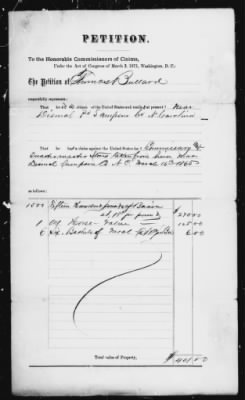 PETITION.
To the Honorable Commissioners of Claims,
Under the Act of Congress of March 3, 1871, Washington, D. C.:
The Petition of Thomas Bullard
respectfully represents:
That citizen of the United States and resides at present near
Dismal Sampson Co N. Carolina
That he had a claim against the United States for Commissary &
Stores taken from him near
Dismal Sampson Co N. C. March 1865
as follows:
Fifteen hundred pounds of Bacon
at pound
1 Horse value
6 Bushels of Meal 6.00
Total value of Property,